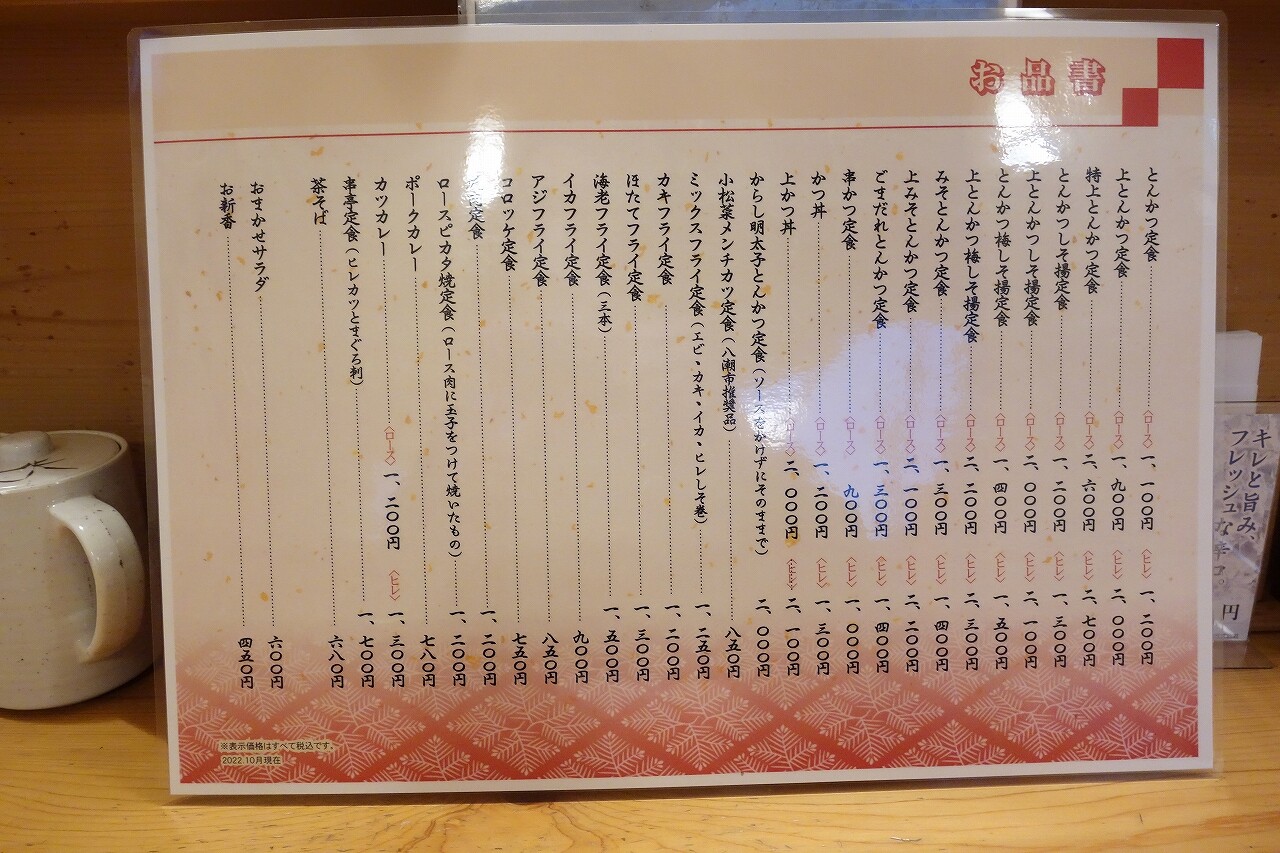 お品書
とんかつ定食 〈ロース〉 一、一〇〇円 〈ヒレ〉 一、二〇〇円
上とんかつ定食 〈ロース〉 一、九〇〇円 〈ヒレ〉 二、〇〇〇円
特上とんかつ定食 〈ロース〉 二、六〇〇円 〈ヒレ〉 二、七〇〇円
とんかつしそ揚定食 〈ロース〉 一、二〇〇円 〈ヒレ〉 一、三〇〇円
上とんかつしそ揚定食 〈ロース〉 二、〇〇〇円 〈ヒレ〉 二、一〇〇円
とんかつ梅しそ揚定食 〈ロース〉 一、四〇〇円 〈ヒレ〉 一、五〇〇円
上とんかつ梅しそ揚定食 〈ロース〉 二、二〇〇円 〈ヒレ〉 二、三〇〇円
みそとんかつ定食 〈ロース〉 一、三〇〇円 〈ヒレ〉 一、四〇〇円
上みそとんかつ定食 〈ロース〉 二、一〇〇円 〈ヒレ〉 二、二〇〇円
ごまだれとんかつ定食 〈ロース〉 一、三〇〇円 〈ヒレ〉 一、四〇〇円
串かつ定食 〈ロース〉 九〇〇円 〈ヒレ〉 一、〇〇〇円
かつ丼 〈ロース〉 一、二〇〇円 〈ヒレ〉 一、三〇〇円
上かつ丼 〈ロース〉 二、〇〇〇円 〈ヒレ〉 二、一〇〇円
からし明太子とんかつ定食（ソースをかけずにそのままで） 二、〇〇〇円
小松菜メンチカツ定食（八潮市推奨品） 八五〇円
ミックスフライ定食（エビ・カキ・イカ・ヒレしそ巻） 一、二五〇円
カキフライ定食 一、二〇〇円
ほたてフライ定食 一、三〇〇円
海老フライ定食（三本） 一、五〇〇円
イカフライ定食 九〇〇円
アジフライ定食 八五〇円
コロッケ定食 七五〇円
定食 一、二〇〇円
ロースピカタ焼定食（ロース肉に玉子をつけて焼いたもの） 一、二〇〇円
ポークカレー 七八〇円
カツカレー 〈ロース〉 一、二〇〇円 〈ヒレ〉 一、三〇〇円
串亭定食（ヒレカツとまぐろ刺） 一、七〇〇円
茶そば 六八〇円
おまかせサラダ 六〇〇円
お新香 四五〇円
※表示価格はすべて税込です。
2022.10月現在
キレと旨み、
フレッシュな辛口。
円